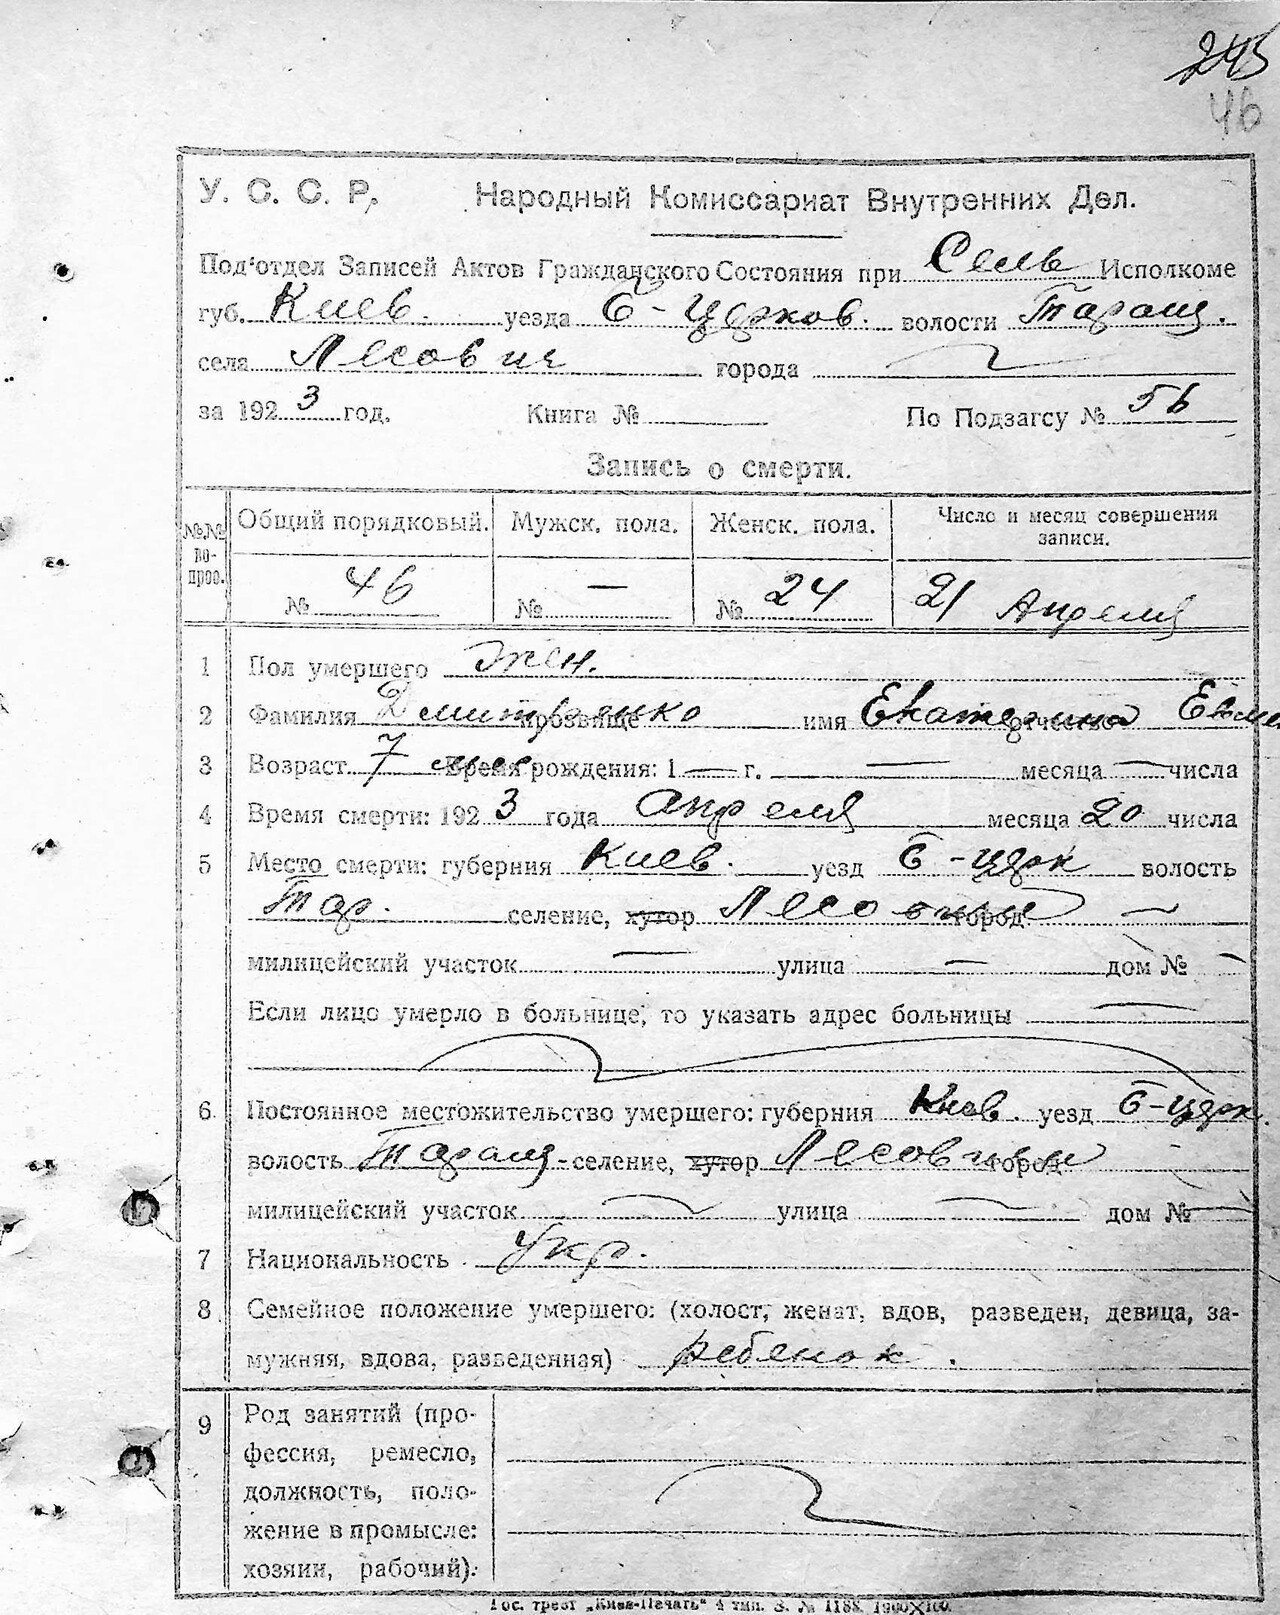 245
46
У. С. С. Р. Народный Комиссариат Внутренних Дел.
Под'отдел Записей Актов Гражданского Состояния при Сель Исполкоме
губ. Киев. уезда Б-Церков. волости Таращ.
села Лесовичи города
за 1923 год. Книга № По Подзагсу № 56
Запись о смерти.
№№ во-прос. Общий порядковый. Мужск. пола. Женск. пола. Число и месяц совершения записи.
№ 46 № — № 24 21 Апреля
1 Пол умершего жен.
2 Фамилия Дмитренко прозвище имя Екатерина отчество Евме
3 Возраст 7 мес Время рождения: 1 — г. — месяца — числа
4 Время смерти: 1923 года апреля месяца 20 числа
5 Место смерти: губерния Киев. уезд Б-црк волость
Тар. селение, хутор Лесовичи город —
милицейский участок — улица — дом № —
Если лицо умерло в больнице, то указать адрес больницы —
6. Постоянное местожительство умершего: губерния Киев. уезд Б-црк.
волость Таращ-селение, хутор Лесовичи город
милицейский участок — улица — дом № —
7 Национальность укр.
8 Семейное положение умершего: (холост, женат, вдов, разведен, девица, за-
мужняя, вдова, разведенная) ребенок.
9 Род занятий (про-
фессия, ремесло,
должность, поло-
жение в промысле:
хозяин, рабочий).
Гос. трест „Киев-Печать" 4 тип. З. № 1188. 1900×100.